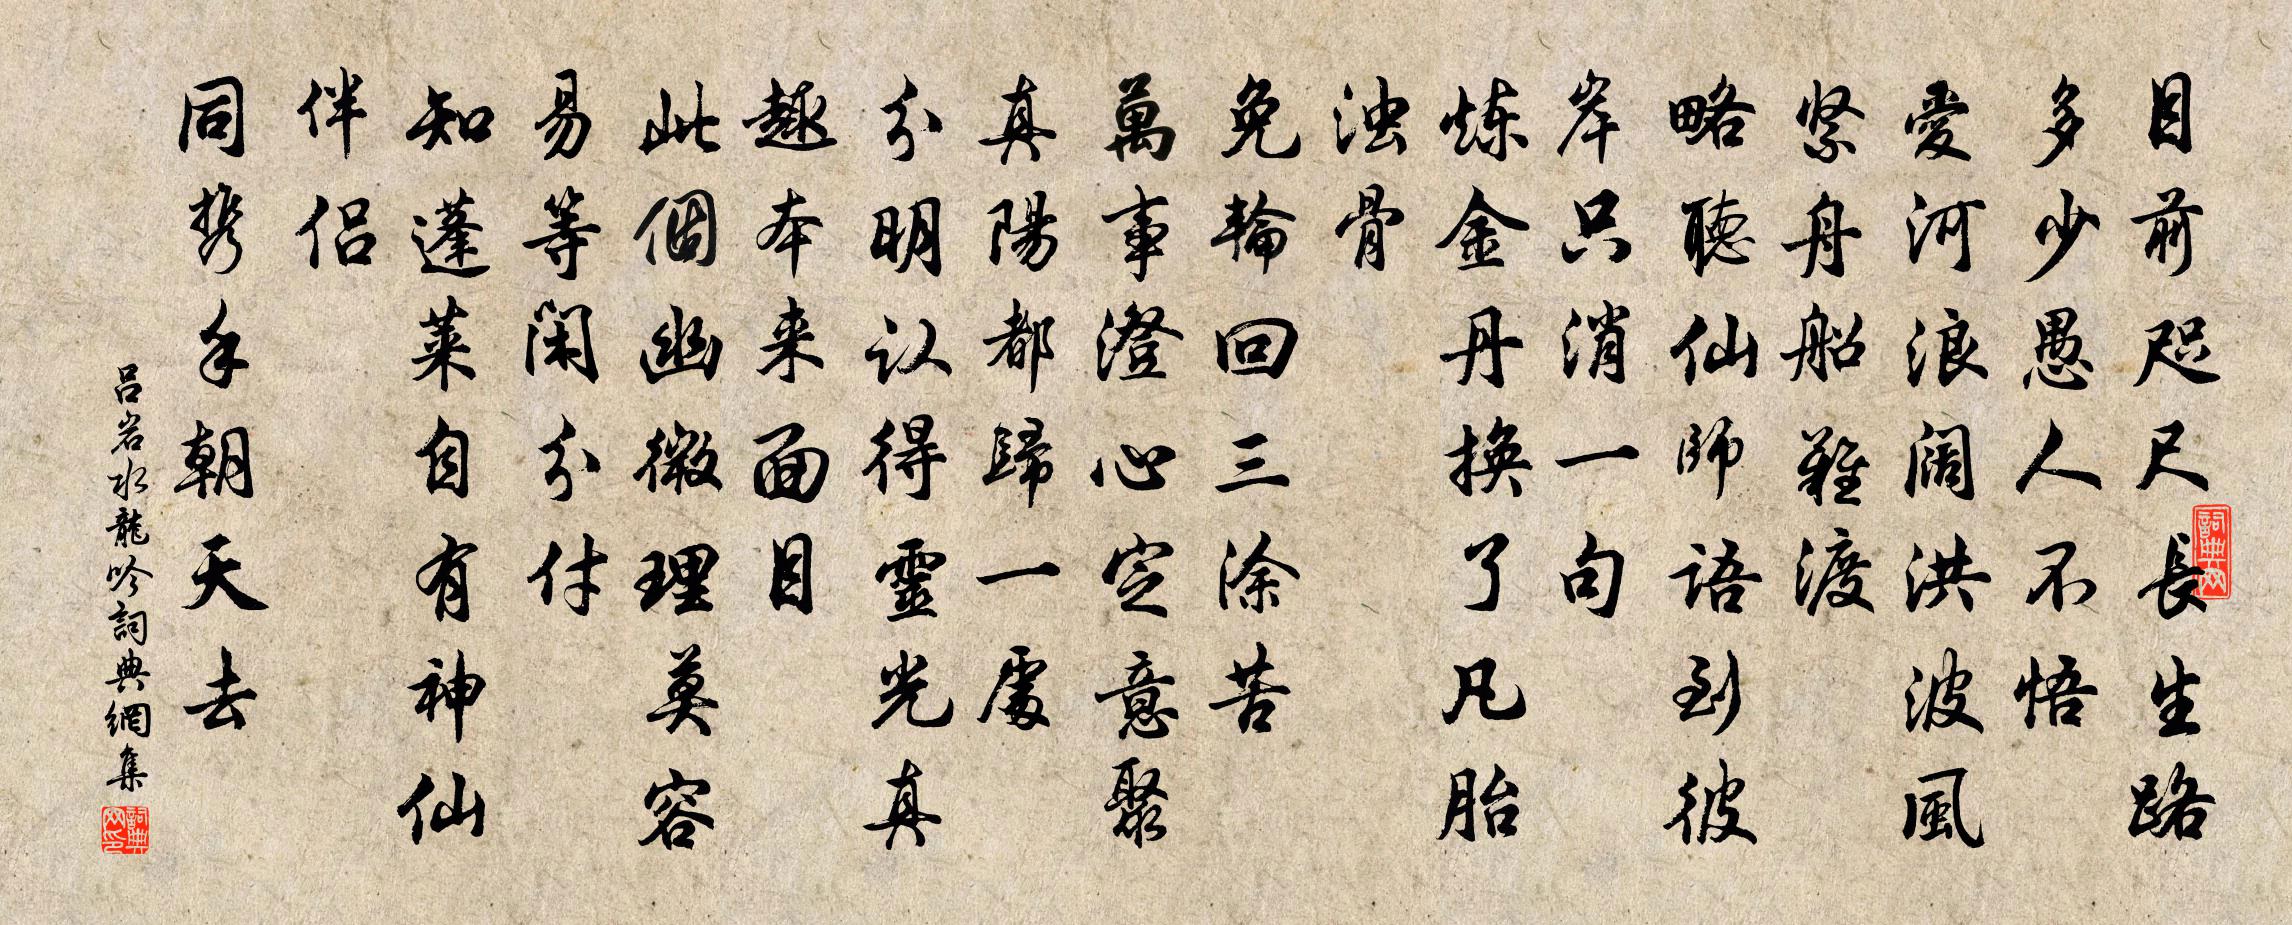 目前咫尺長生路
多少愚人不悟
愛河浪阔洪波風
紧舟船難渡
略聽仙師語到彼
岸只消一句
炼金丹換了凡胎
浊骨
免輪回三涂苦
萬事澄心定意聚
真陽都歸一處
分明认得靈光真
趣本来面目
此個幽微理莫容
易等閑分付
知蓬莱自有神仙
伴侣
同携手朝天去
吕岩水龍吟詞典網集
詞典网
詞典网印